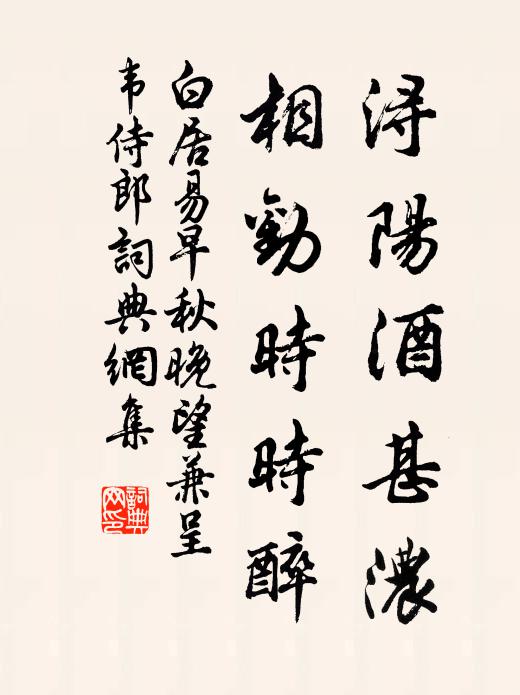 潯陽酒甚濃
相勸時時醉
白居易早秋晚望兼呈
韦侍郎詞典網集
詞典
网印